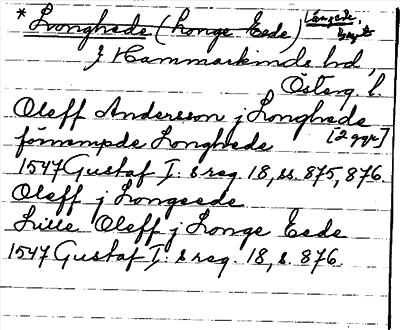 * Longhede (Longe Eede) Långede,
j Hammarkinds hd,
Österg. l.
Oleff Andersson j Longhede
förnempde Longhede [2 ggr]
1547 Gustaf I:s reg. 18, ss. 875, 876.
Oleff j Longeede
Lille Oleff j Longe Eede
1547 Gustaf I:s reg. 18, s. 876.